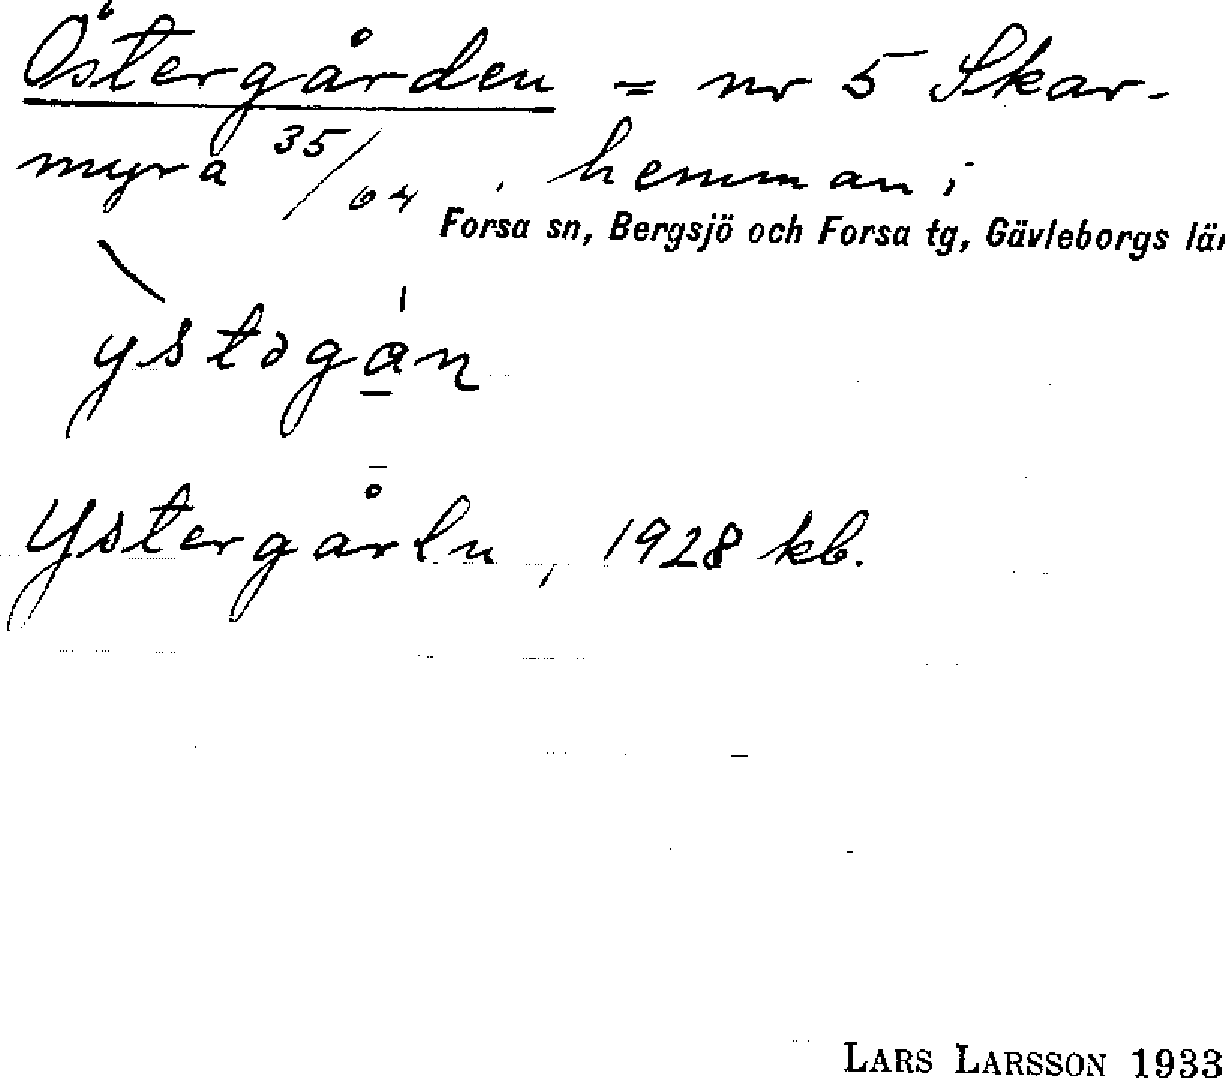 Östergården = nr 5 Skar-
myra 35/64, hemman i
Forsa sn, Bergsjö och Forsa tg, Gävleborgs län
\ ystəga̱n
Ystergårln, 1928 kb.
LARS LARSSON 1933